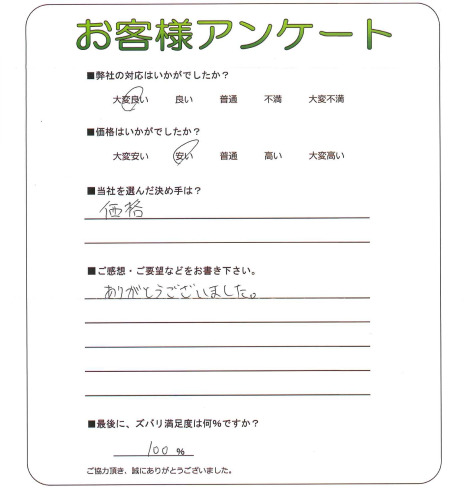 お客様アンケート
■弊社の対応はいかがでしたか？
大変良い 良い 普通 不満 大変不満
■価格はいかがでしたか？
大変安い 安い 普通 高い 大変高い
■当社を選んだ決め手は？
価格
■ご感想・ご要望などをお書き下さい。
ありがとうございました。
■最後に、ズバリ満足度は何%ですか？
100 %
ご協力頂き、誠にありがとうございました。